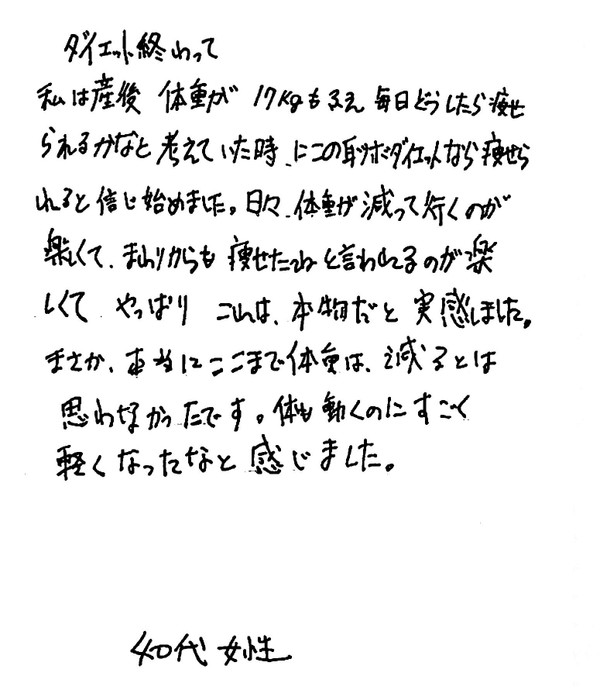 ダイエット終わって
私は産後 体重が 17kgもふえ 毎日どうしたら痩せ
られるかなと考えていた時、にこの耳ツボダイエットなら痩せら
れると信じ始めました。日々、体重が減って行くのが
楽しくて、まわりからも 痩せたねと言われてるのが楽
しくて やっぱり これは、本物だと実感しました。
まさか、本当にここまで体重は、減るとは
思わなかったです。体も動くのにすごく
軽くなったなと感じました。
40代 女性